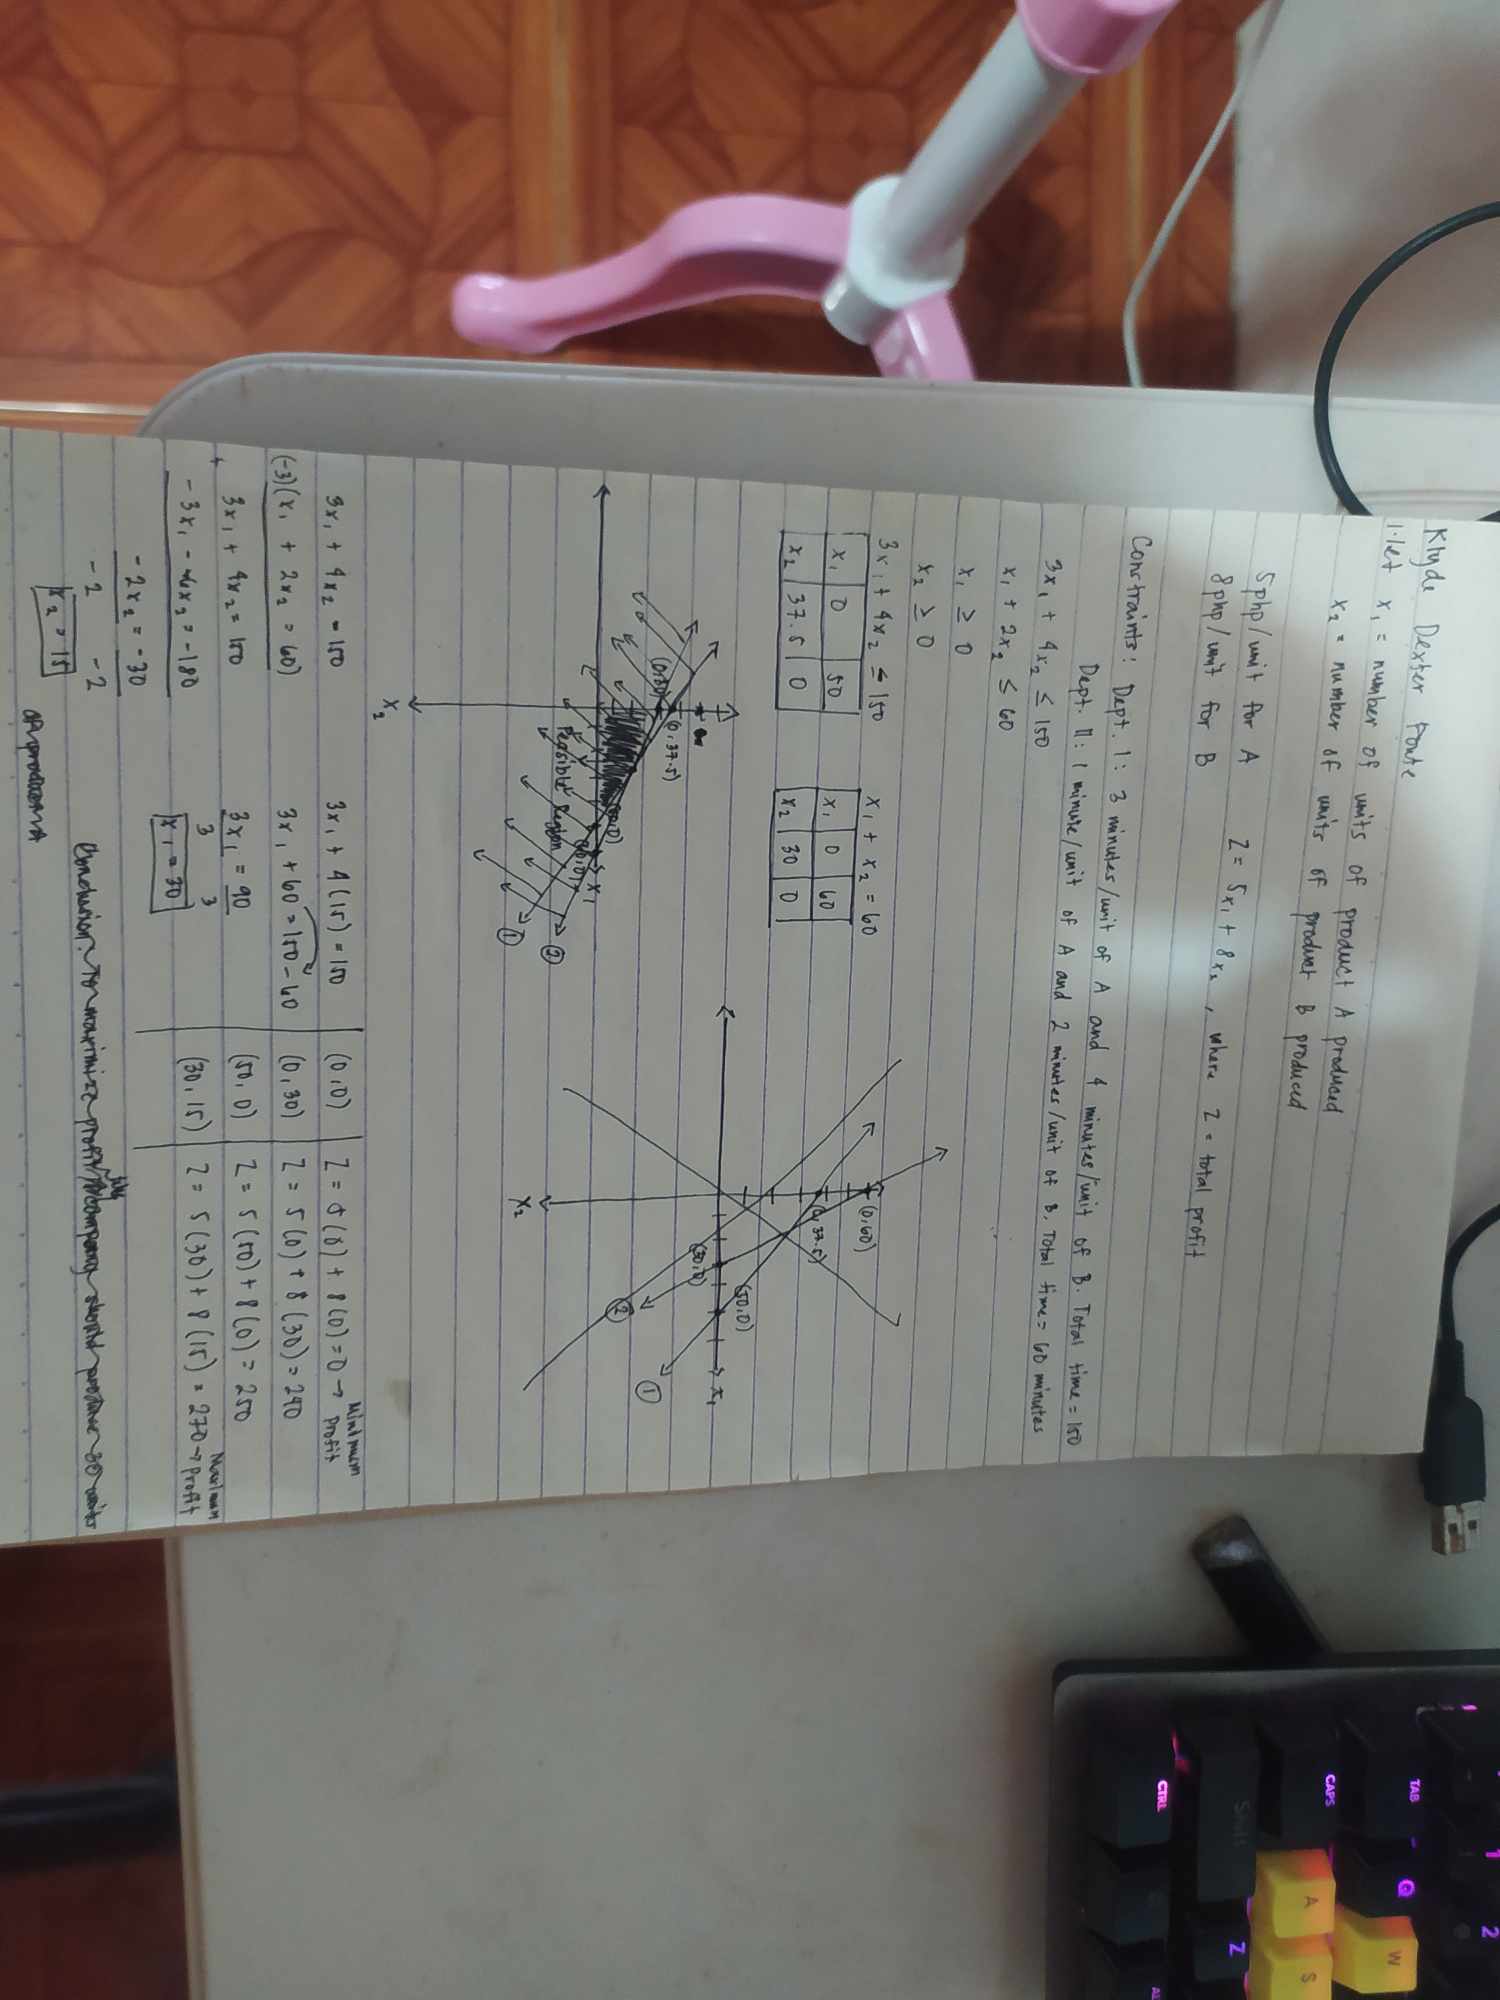 Klyde Dexter Foute
1. let x₁ = number of units of product A produced
x₂ = number of units of product B produced
5php/unit for A
8php/unit for B
Z = 5x₁ + 8x₂, where Z = total profit
Constraints: Dept. I: 3 minutes/unit of A and 4 minutes/unit of B. Total time = 150
Dept. II: 1 minute/unit of A and 2 minutes/unit of B. Total time = 60 minutes
3x₁ + 4x₂ ≤ 150
x₁ + 2x₂ ≤ 60
x₁ ≥ 0
x₂ ≥ 0
3x₁ + 4x₂ ≤ 150
x₁ 0 50
x₂ 37.5 0
x₁ + x₂ = 60
x₁ 0 60
x₂ 30 0
(0,60)
(0,37.5)
(50,0)
x₁
(30,0)
①
②
x₂
(0,37.5)
(0,30)
(50,0)
x₁
(60,0)
Feasible Region
②
①
x₂
3x₁ + 4x₂ = 150
(-3)(x₁ + 2x₂ = 60)
3x₁ + 4x₂ = 150
+
-3x₁ - 6x₂ = -180
-2x₂ = -30
-2 -2
x₂ = 15
3x₁ + 4(15) = 150
3x₁ + 60 = 150 - 60
3x₁ = 90
3 3
x₁ = 30
(0,0) Z = 5(0) + 8(0) = 0 → Minimum Profit
(0,30) Z = 5(0) + 8(30) = 240
(50,0) Z = 5(50) + 8(0) = 250
(30,15) Z = 5(30) + 8(15) = 270 → Maximum Profit
Conclusion: To maximize profit the company should produce 30 units
of product A
TAB
CAPS
Shift
CTRL
1
2
Q
W
A
S
Z